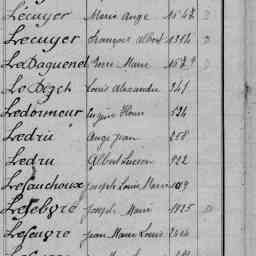 Lecuyer Marie Ange 1542
Lecuyer François Albert 1314
LeDaguenel Pierre Marie 1579
Le Déych Louis Alexandre 341
Ledormeur Eugène Henri 594
Ledru Ange Jean 258
Ledru Albert Lucien 922
Lefaucheux Joseph Louis Marie 109
Lefebvre Joseph Marie 1925
Lefeuvre Jean Marie Louis 2414